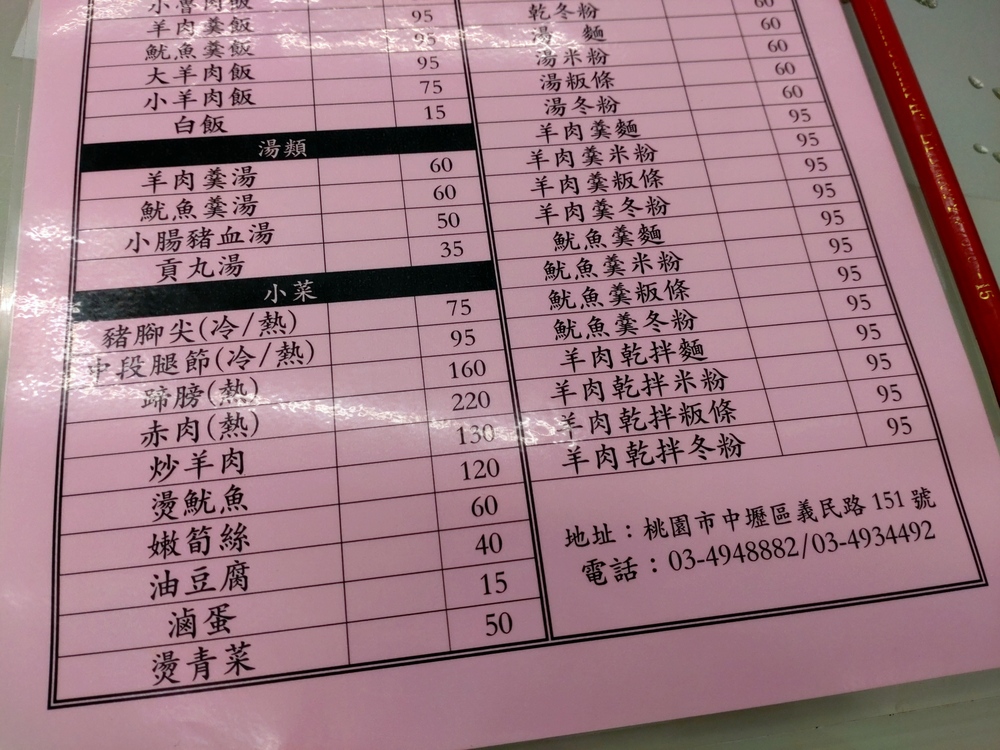 小魯肉飯
羊肉羹飯 95
魷魚羹飯 95
大羊肉飯 95
小羊肉飯 75
白飯 15
湯類
羊肉羹湯 60
魷魚羹湯 60
小腸豬血湯 50
貢丸湯 35
小菜
豬腳尖(冷/熱) 75
中段腿節(冷/熱) 95
蹄膀(熱) 160
赤肉(熱) 220
炒羊肉 130
燙魷魚 120
嫩筍絲 60
油豆腐 40
滷蛋 15
燙青菜 50
乾冬粉 60
湯麵 60
湯米粉 60
湯粄條 60
湯冬粉 60
羊肉羹麵 95
羊肉羹米粉 95
羊肉羹粄條 95
羊肉羹冬粉 95
魷魚羹麵 95
魷魚羹米粉 95
魷魚羹粄條 95
魷魚羹冬粉 95
羊肉乾拌麵 95
羊肉乾拌米粉 95
羊肉乾拌粄條 95
羊肉乾拌冬粉 95
地址：桃園市中壢區義民路 151 號
電話：03-4948882/03-4934492